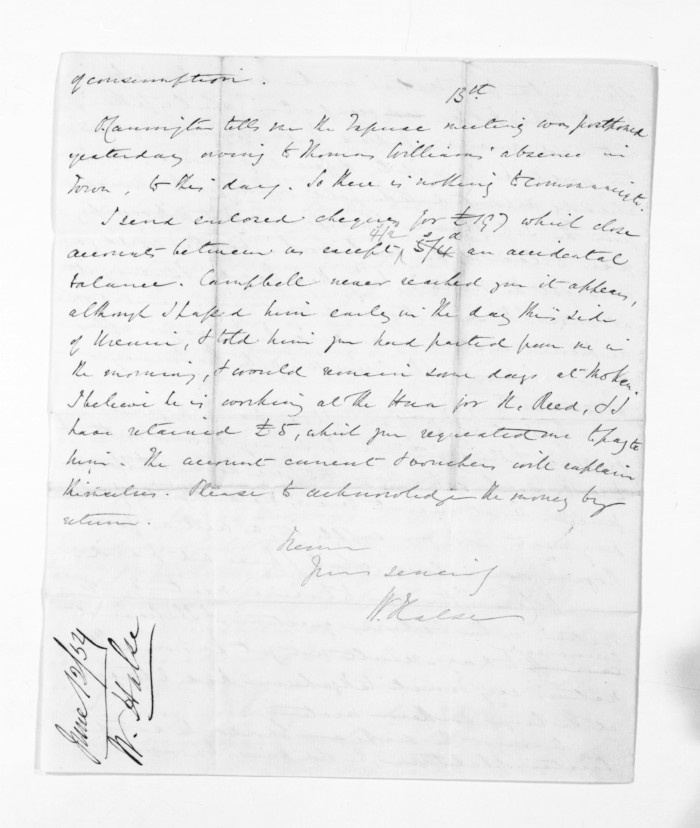 of consumption.
13th
Carrington tells me the Tapuae meeting was postponed
yesterday owing to Thomas Williams' absence in
Town, to this day. So there is nothing to communicate.
I send enclosed cheques for £197 which close
accounts between us except 4/2 5s/4d an accidental
balance. Campbell never reached you it appears,
although I passed him early in the day this side
of Urenui, & told him you had parted from me in
the morning, & would remain some days at Mokau.
I believe he is working at the Hua for Mr. Reed, & I
have retained £5, which you requested me to pay to
him. The account current & vouchers will explain
themselves. Please to acknowledge the money by
return.
Yours sincerely
W. Halse
June 13/54
W. Halse